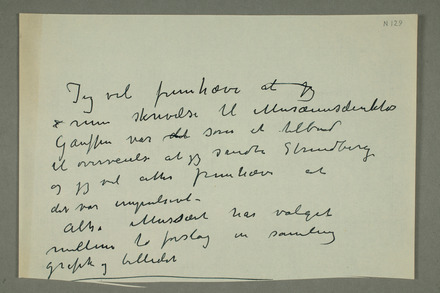 N 129
Jeg vil fremhæve at jeg
i min skrivelse til Musæumsdirektør
Gauffin var det som et tilbud
til overveielse at jeg sendte Strindberg
og jeg vil atter fremhæve at
det var impulsivt –
Altså Musæet har valget
mellem to forslag en samling
grafik og billedet